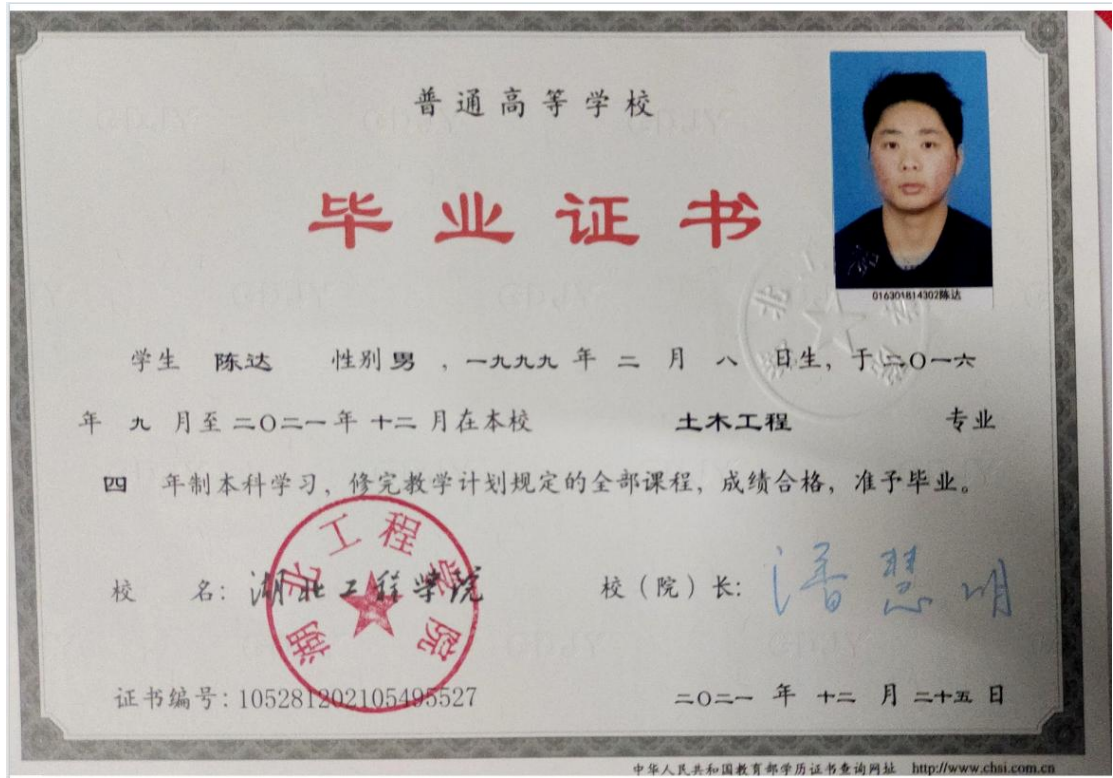 普通高等学校
毕业证书
016301814302陈达
学生 陈达 性别 男 ，一九九九 年 二 月 八 日生，于 二〇一六
年 九 月至 二〇二一 年 十二 月在本校 土木工程 专业
四 年制本科学习，修完教学计划规定的全部课程，成绩合格，准予毕业。
校 名：湖北工程学院 校（院）长：潘慧明
湖北工程学院
证书编号：105281202105495527 二〇二一 年 十二 月 二十五 日
中华人民共和国教育部学历证书查询网址 http://www.chsi.com.cn